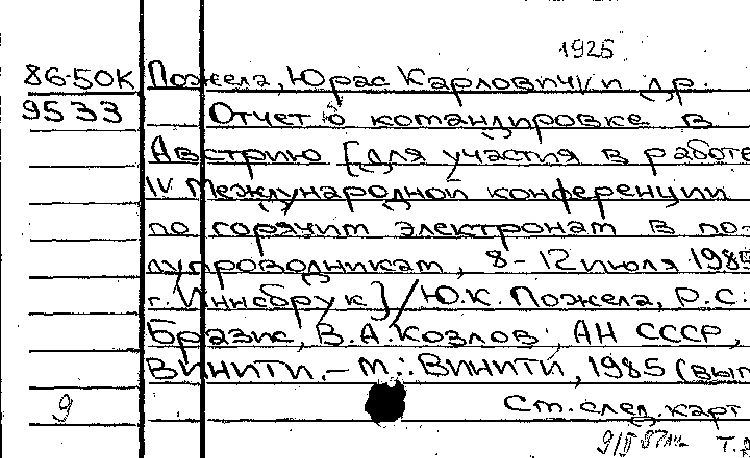 1925
86-50К Пожела, Юрас Карлович/и др.
9533 Отчет о командировке в
Австрию [для участия в работе
IV Международной конференции
по горячим электронам в по-
лупроводникам, 8-12 июля 1985
г. Иннсбрук]/Ю.К. Пожела, Р.С.
Бразис, В.А. Козлов; АН СССР,
ВИНИТИ.- М.: ВИНИТИ, 1985 (вып
9 См. след. карт